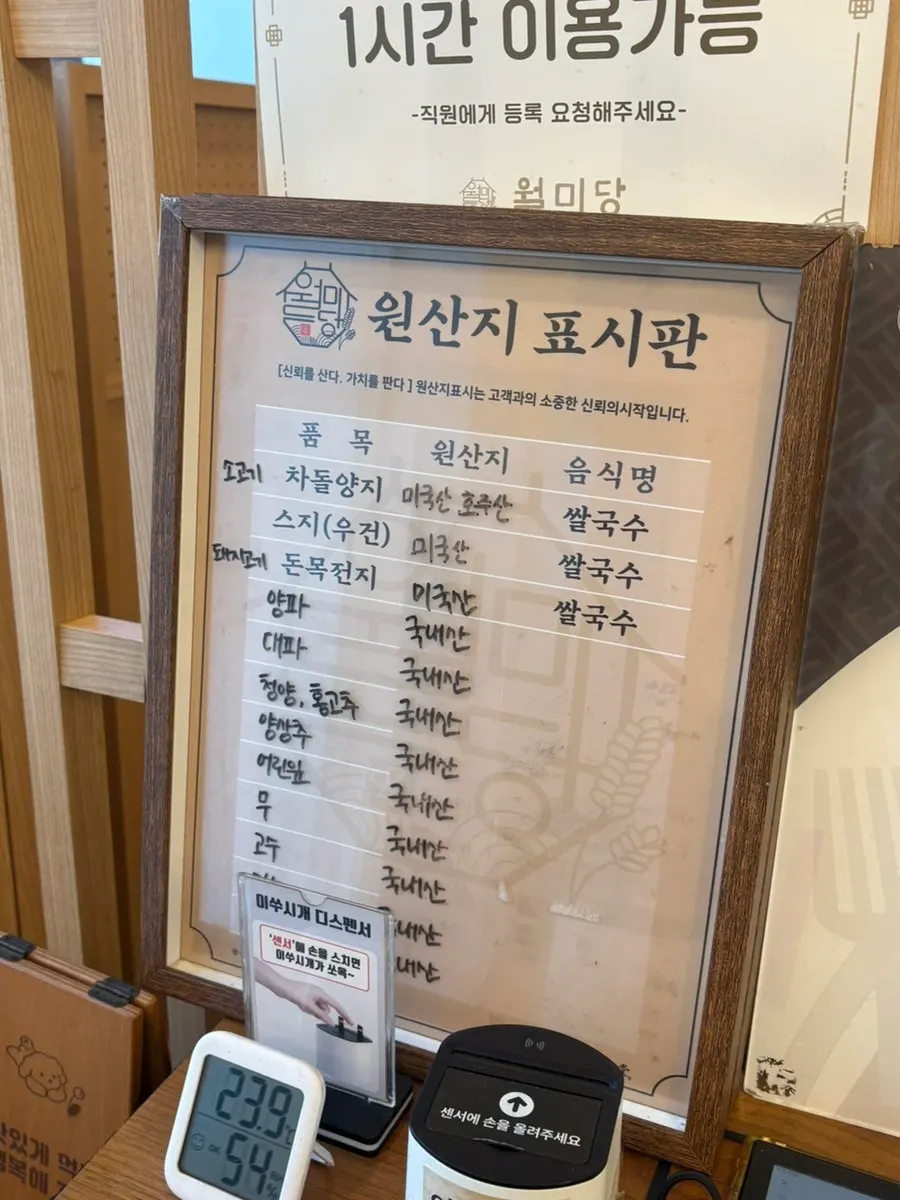 1시간 이용가능
-직원에게 등록 요청해주세요-
월미당
월미당
원산지 표시판
[신뢰를 산다. 가치를 판다] 원산지표시는 고객과의 소중한 신뢰의시작입니다.
품 목 원산지 음식명
소고기 차돌양지 미국산 호주산 쌀국수
스지(우건) 미국산 쌀국수
돼지고기 돈목전지 미국산 쌀국수
양파 국내산
대파 국내산
청양, 홍고추 국내산
양상추 국내산
어린잎 국내산
무 국내산
고수 국내산
이쑤시개 디스펜서
'센서'에 손을 스치면
이쑤시개가 쏘옥~
센서에 손을 올려주세요
23.9 ℃
54